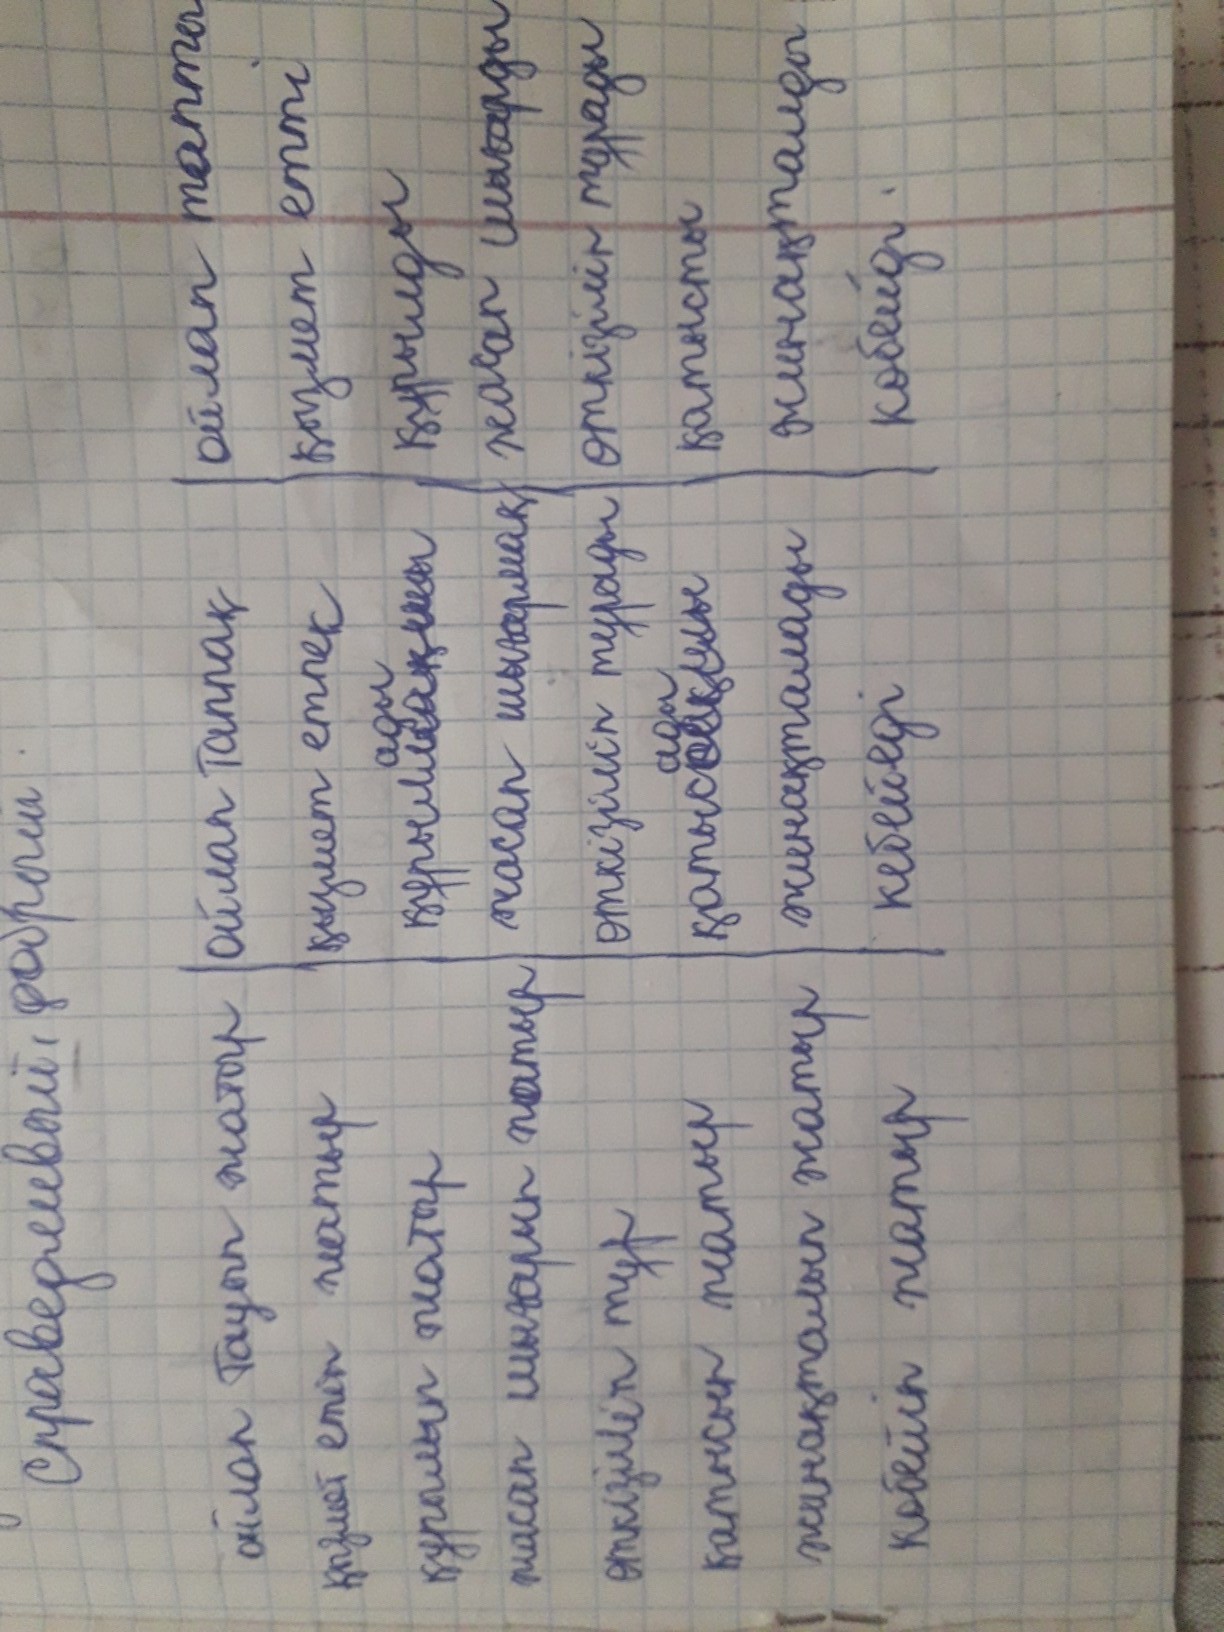 Справедливый, добрый.
ойлап Тауып жатыр | ойлап Таппақ | ойлап тапты
қызмет етіп жатыр | қызмет етпек | қызмет етті
құрылып жатыр | құрылады | құрылды
жасап шығарып жатыр | жасап шығармақ | жасап шығарды
өткізіліп тұр | өткізіліп тұрады | өткізіліп тұрады
қатысып жатыр | қатысады | қатысты
жинақталып жатыр | жинақталады | жинақталды
көбейіп жатыр | көбейеді | көбейді.